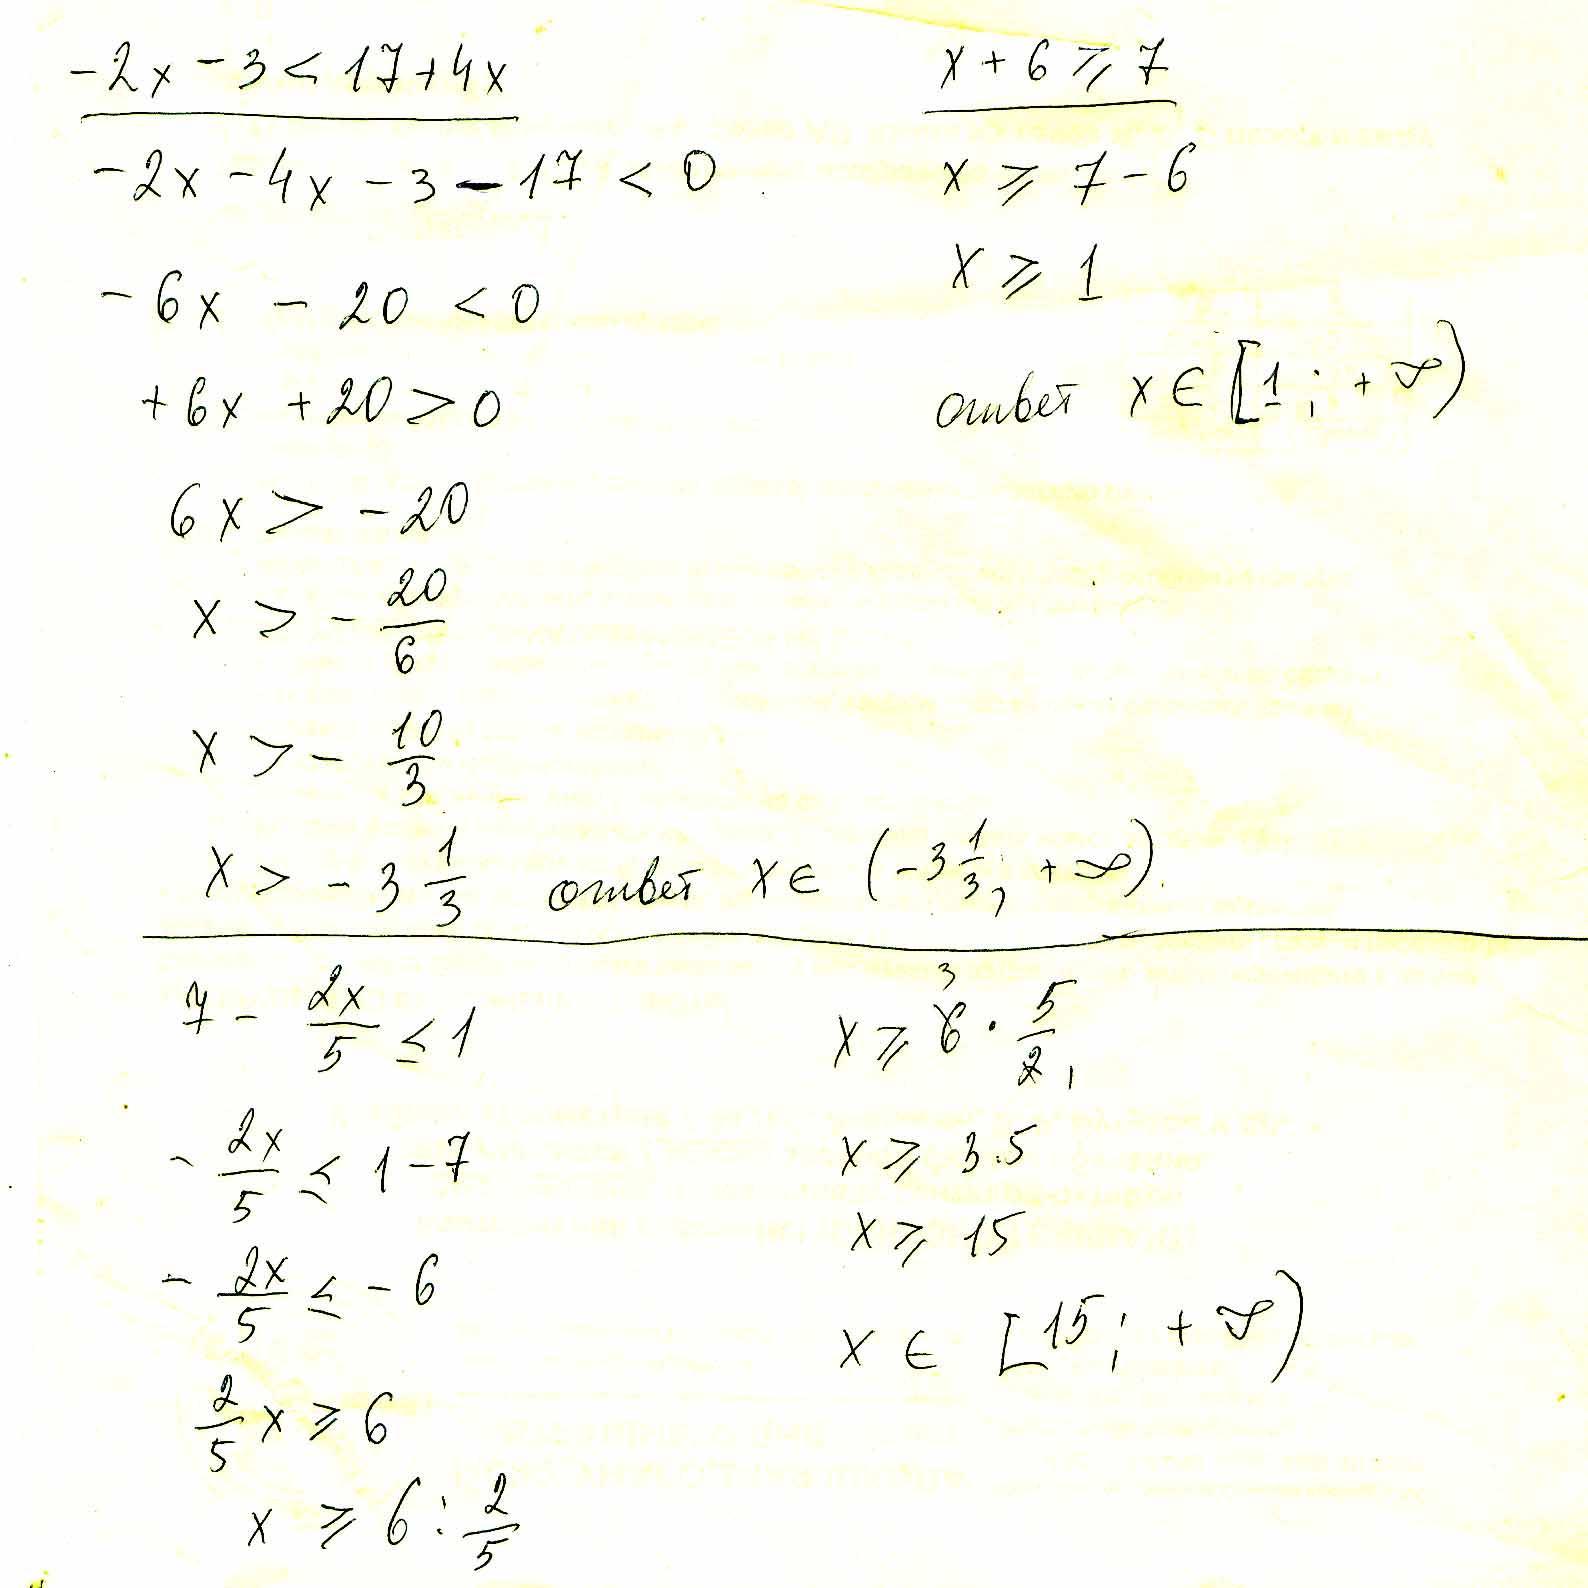 -2x - 3 < 17 + 4x
-2x - 4x - 3 - 17 < 0
-6x - 20 < 0
+6x + 20 > 0
6x > -20
x > - 20/6
x > - 10/3
x > -3 1/3 ответ x ∈ (-3 1/3; +∞).
x + 6 ⩾ 7
x ⩾ 7 - 6
x ⩾ 1
ответ x ∈ [1; +∞)
7 - 2x/5 ≤ 1
- 2x/5 ≤ 1 - 7
- 2x/5 ≤ -6
2/5 x ⩾ 6
x ⩾ 6 : 2/5
x ⩾ 6 3 · 5/2 1
x ⩾ 3·5
x ⩾ 15
x ∈ [15; +∞)